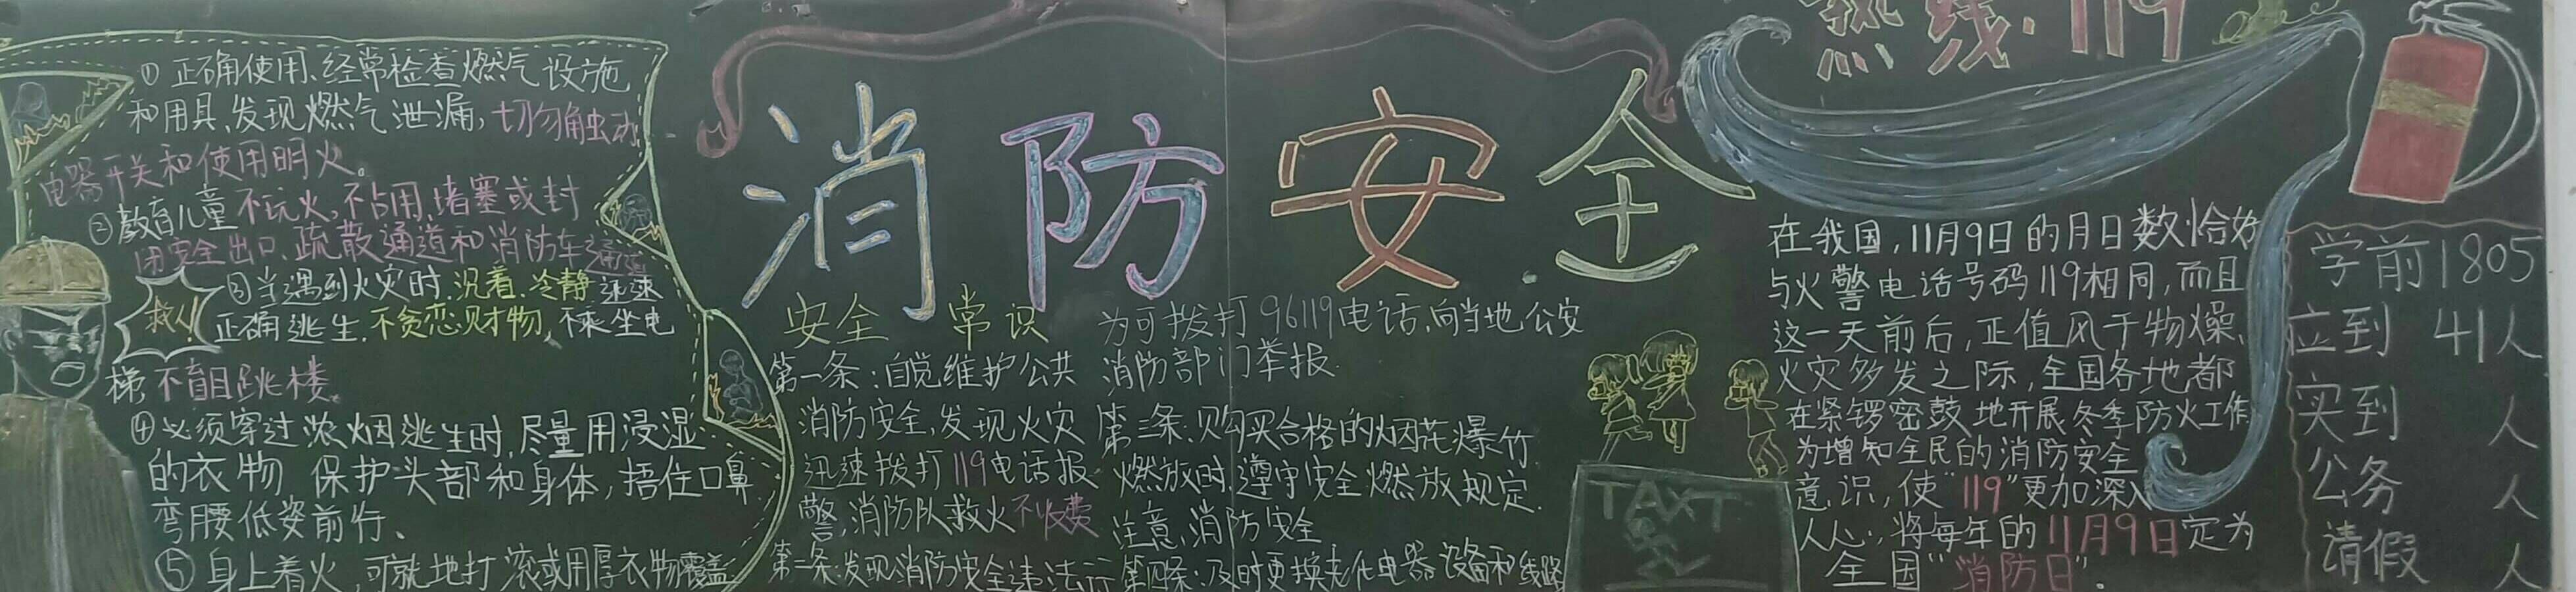 ①正确使用、经常检查燃气设施
和用具、发现燃气泄漏,切勿触动
电器开关和使用明火。
②教育儿童不玩火,不占用、堵塞或封
闭安全出口、疏散通道和消防车通道
救人!
③当遇到火灾时,沉着、冷静迅速
正确逃生,不贪恋财物,不乘坐电
梯不盲目跳楼。
④必须穿过浓烟逃生时,尽量用浸湿
的衣物 保护头部和身体,捂住口鼻
弯腰低姿前行、
⑤身上着火,可就地打滚或用厚衣物覆盖
消防安全
安全 常识
第一条:自觉维护公共
消防安全,发现火灾
迅速拨打119电话报
警,消防队救火不收费
第一条:发现消防安全违法行
为可拨打96119电话,向当地公安
消防部门举报.
第三条:购买合格的烟花爆竹
燃放时,遵守安全燃放规定.
注意,消防安全
第四条:及时更换老化电器设备和线路
TAXT
热线·119
在我国,11月9日的月日数恰好
与火警电话号码119相同,而且
这一天前后,正值风干物燥、
火灾多发之际,全国各地都
在紧锣密鼓地开展冬季防火工作
为增知全民的消防安全
意识,使"119"更加深入
人心,将每年的11月9日定为
全国"消防日".
学前1805
应到 41人
实到 人
公务 人
请假 人